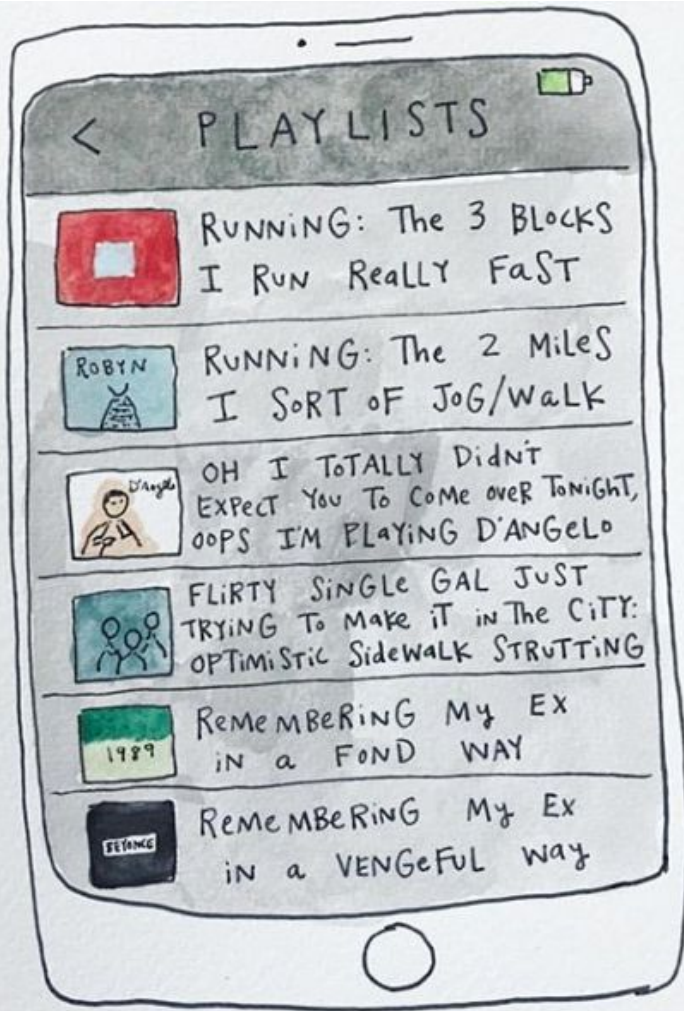 < PLAYLISTS
RUNNING: The 3 BLOCKS
I RUN REALLY FAST
ROBYN
RUNNING: The 2 MILES
I SORT OF JOG/WALK
D'Angelo
OH I TOTALLY DIDN'T
EXPECT YOU TO COME OVER TONIGHT,
OOPS I'M PLAYING D'ANGELO
FLIRTY SINGLE GAL JUST
TRYING TO MAKE IT IN The CITY:
OPTIMISTIC SIDEWALK STRUTTING
1989
REMEMBERING MY EX
IN a FOND WAY
BEYONCE
REMEMBERING MY EX
IN a VENGEFUL WAY